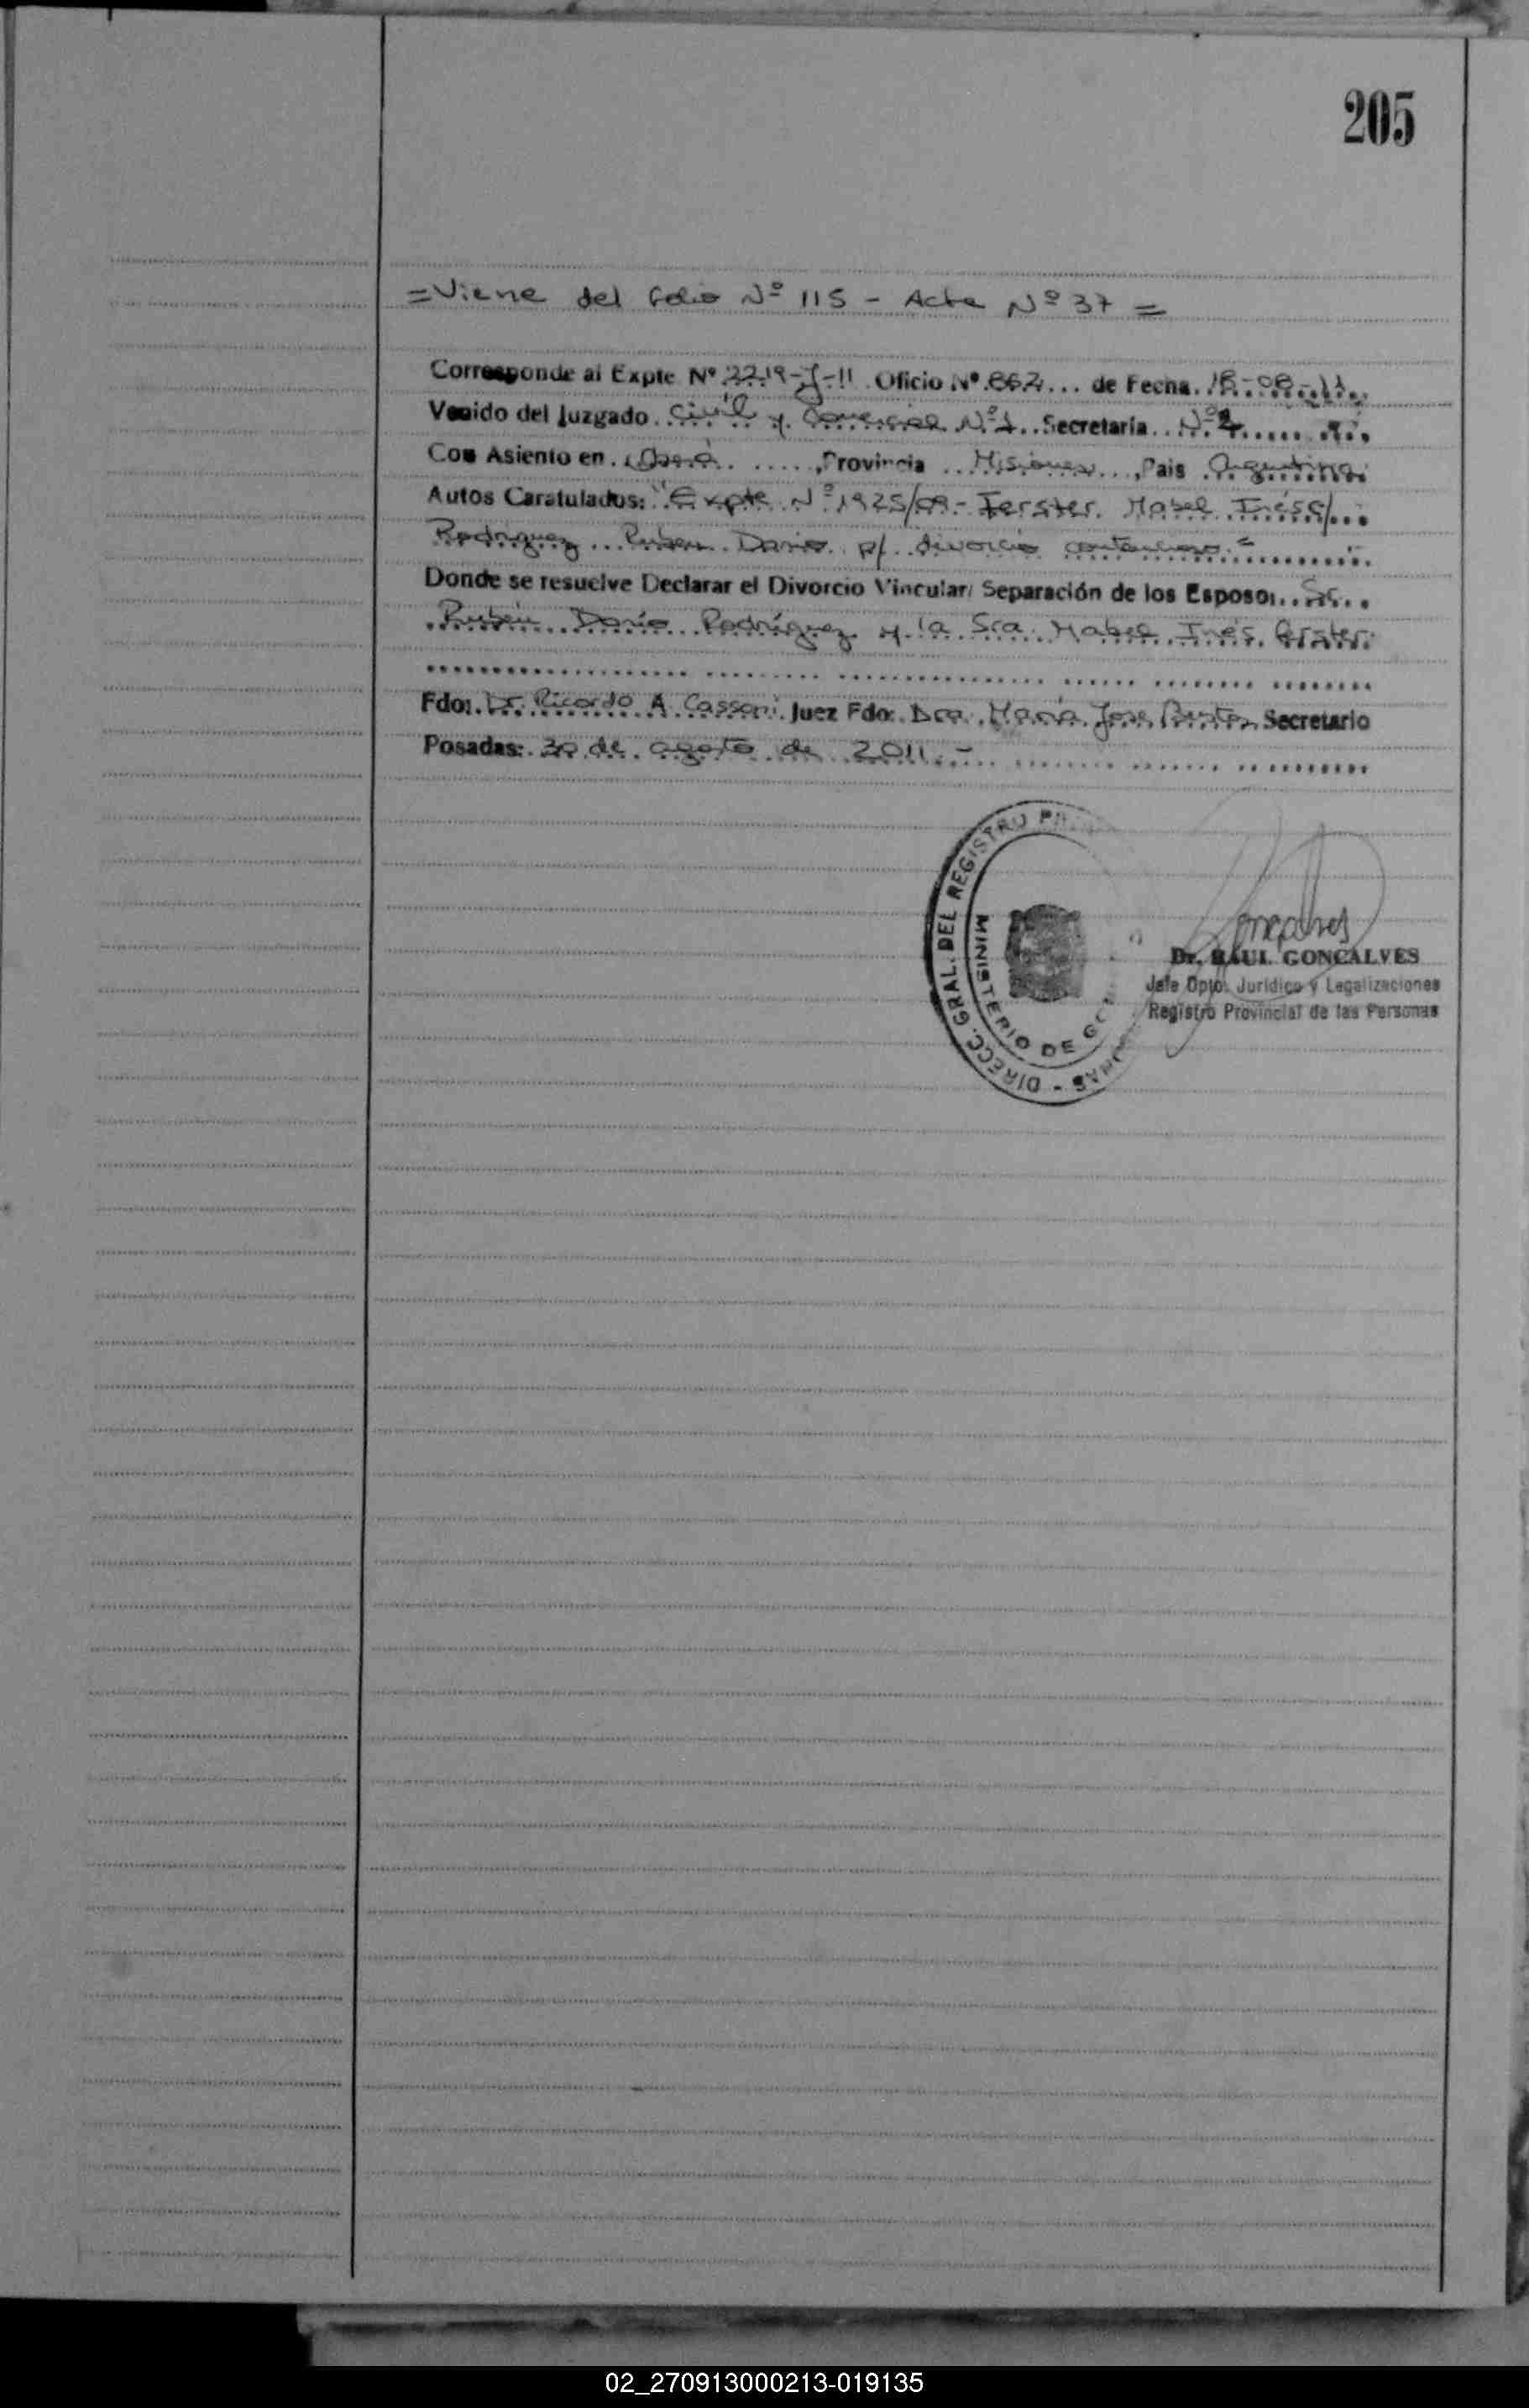 205
=Viene del folio Nº 115 - Acta Nº 37 =
Corresponde al Expte Nº 2219-J-11 Oficio Nº 862 de Fecha 18-08-11
Venido del Juzgado Civil y Comercial Nº 1 Secretaría Nº 2
Con Asiento en Oberá, Provincia Misiones, Pais Argentina
Autos Caratulados: "Expte Nº 1925/09.- Ferster Mabel Inés c/
Rodriguez Ruben Dario p/ divorcio contencioso"
Donde se resuelve Declarar el Divorcio Vincular/ Separación de los Esposos Sr.
Rubén Darío Rodríguez y la Sra. Mabel Inés
Fdo: Dr. Ricardo A. Cassoni Juez Fdo: Dra. María José Secretario
Posadas: 30 de agosto de 2011.-
DIRECC. GRAL. DEL REGISTRO
MINISTERIO DE
Dr. RAUL GONCALVES
Jefe Dpto. Jurídico y Legalizaciones
Registro Provincial de las Personas
02_270913000213-019135